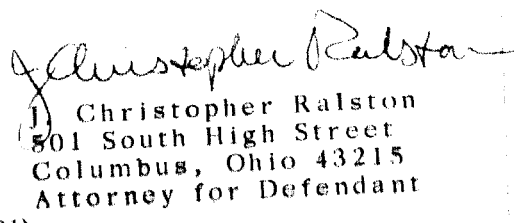 J Christopher Ralston
J. Christopher Ralston
801 South High Street
Columbus, Ohio 43215
Attorney for Defendant